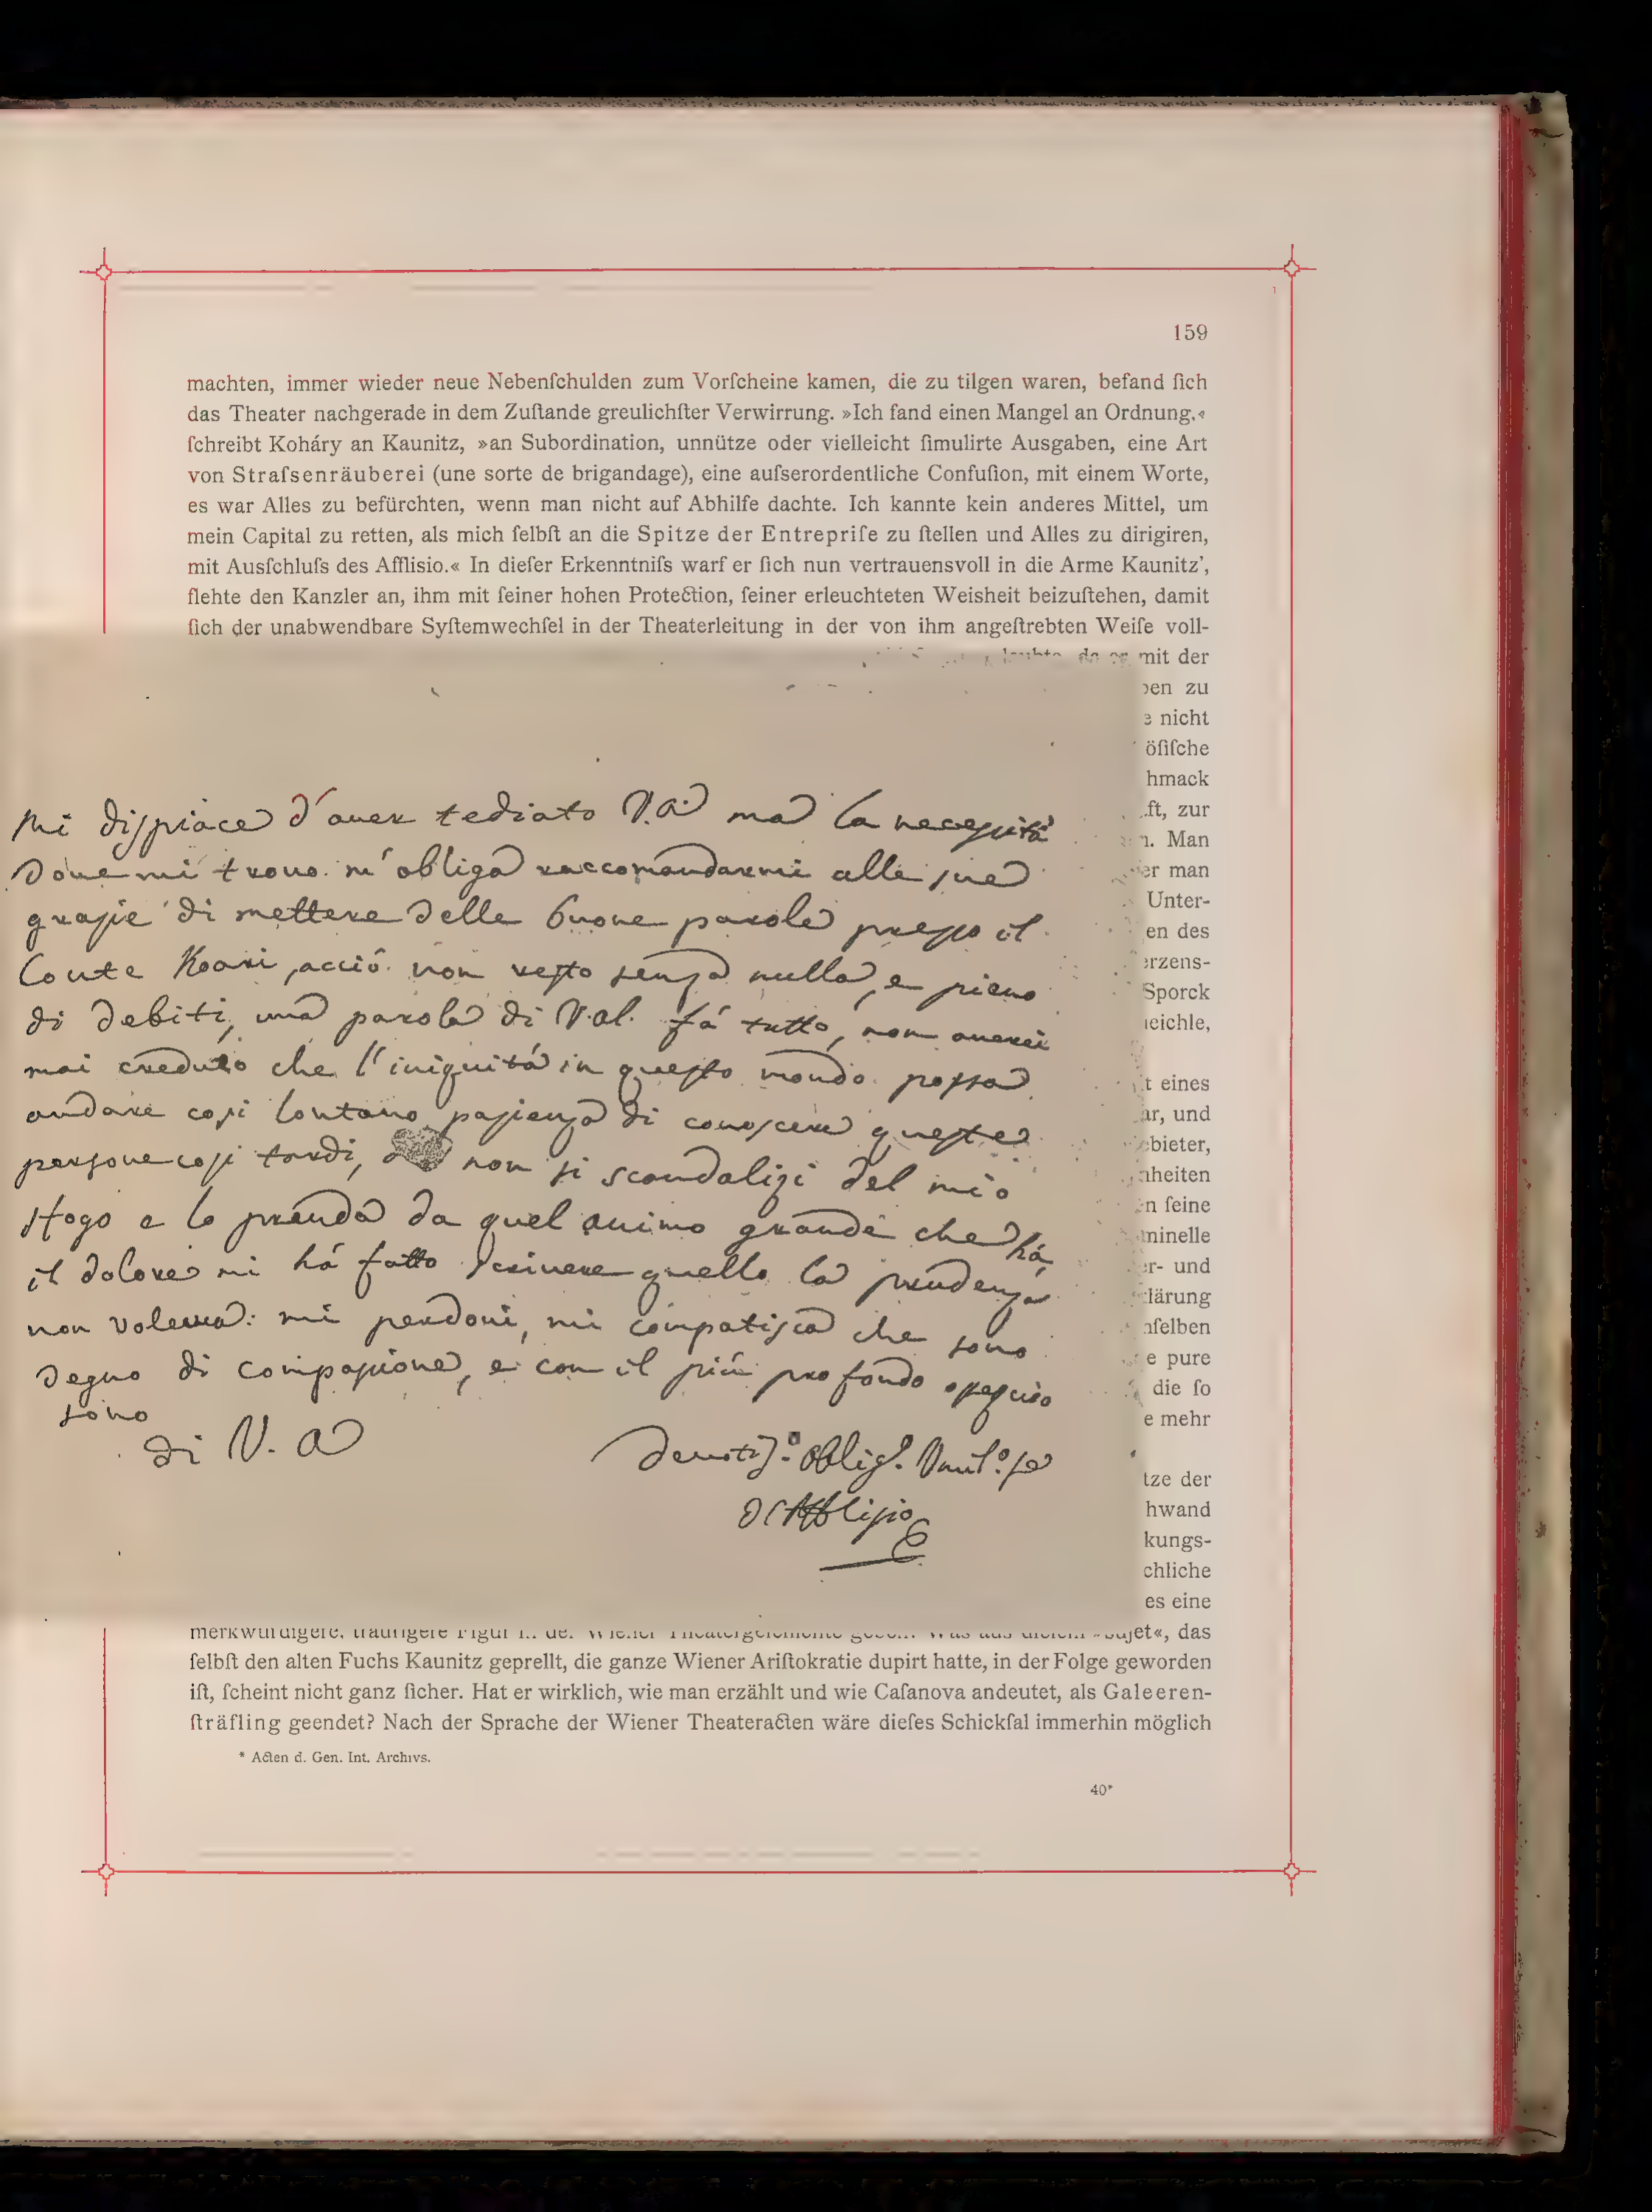 159
machten, immer wieder neue Nebenſchulden zum Vorſcheine kamen, die zu tilgen waren, befand ſich
das Theater nachgerade in dem Zuſtande greulichſter Verwirrung. »Ich fand einen Mangel an Ordnung,«
ſchreibt Koháry an Kaunitz, »an Subordination, unnütze oder vielleicht ſimulirte Ausgaben, eine Art
von Straſsenräuberei (une sorte de brigandage), eine auſserordentliche Confuſion, mit einem Worte,
es war Alles zu befürchten, wenn man nicht auf Abhilfe dachte. Ich kannte kein anderes Mittel, um
mein Capital zu retten, als mich ſelbſt an die Spitze der Entrepriſe zu ſtellen und Alles zu dirigiren,
mit Ausſchluſs des Afflisio.« In dieſer Erkenntniſs warf er ſich nun vertrauensvoll in die Arme Kaunitz',
flehte den Kanzler an, ihm mit ſeiner hohen Protection, ſeiner erleuchteten Weisheit beizuſtehen, damit
ſich der unabwendbare Syſtemwechſel in der Theaterleitung in der von ihm angeſtrebten Weiſe voll-
mit der
zu
nicht
öſiſche
hmack
ft, zur
Man
man
Unter-
en des
erzens-
Sporck
eichle,
t eines
ar, und
ebieter,
nheiten
ſeine
minelle
er- und
klärung
nſelben
e pure
die ſo
e mehr
tze der
hwand
kungs-
chliche
es eine
Mi dispiace d'aver tediato V.A. ma la necessità
dove mi trovo m'obliga raccomandarmi alle sue
grasie di mettere delle buone parole presso il
Conte Koari, acciò non resto senza nulla, e pieno
di debiti, una parola di V.A. fá tutto, non averei
mai creduto che l'iniquitá in questo mondo possa
andare cosi lontano pasienza di conoscere queste
persone cosi tardi, non si scandalizi del mio
sfogo e lo prenda da quel animo grande che há,
il dolore mi há fatto scrivere quello la prudenza
non voleva: mi perdoni, mi compatisca che sono
degno di compasione, e con il piú profondo ossequio
sono
di V. A
Devotis.º Obligº. Umilº. se
D'Afflisio
merkwürdigere, traurigere Figur in der Wiener Theatergeſchichte »Sujet«, das
ſelbſt den alten Fuchs Kaunitz geprellt, die ganze Wiener Ariſtokratie dupirt hatte, in der Folge geworden
iſt, ſcheint nicht ganz ſicher. Hat er wirklich, wie man erzählt und wie Caſanova andeutet, als Galeeren-
ſträfling geendet? Nach der Sprache der Wiener Theateracten wäre dieſes Schickſal immerhin möglich
* Acten d. Gen. Int. Archivs.
40*